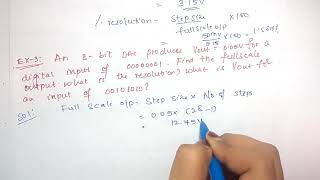 3.15V
% resolution = Step size × 100
full scale o/p
50mV × 100 = 1.588%
3.15
EX-3: An 8-bit DAC produces Vout = 0.05V for a
digital input of 00000001. Find the full scale
o/p what is the resolution) what is Vout for
an input of 00101010?
Sol: Full Scale o/p = Step size × No of steps
= 0.05 × (28-1)
= 12.75V